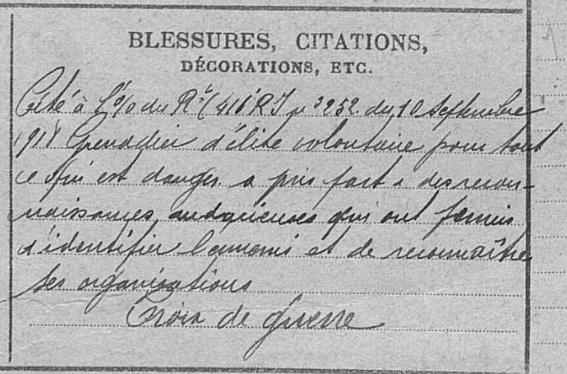 BLESSURES, CITATIONS,
DÉCORATIONS, ETC.
Cité à l'o/o du Rt (416e RI nº 252 du 10 Septembre
1918 Grenadier d'élite volontaire pour tout
ce qui est danger a pris part à des recon-
naissances, audacieuses qui ont permis
d'identifier l'ennemi et de reconnaître
ses organisations
Croix de guerre